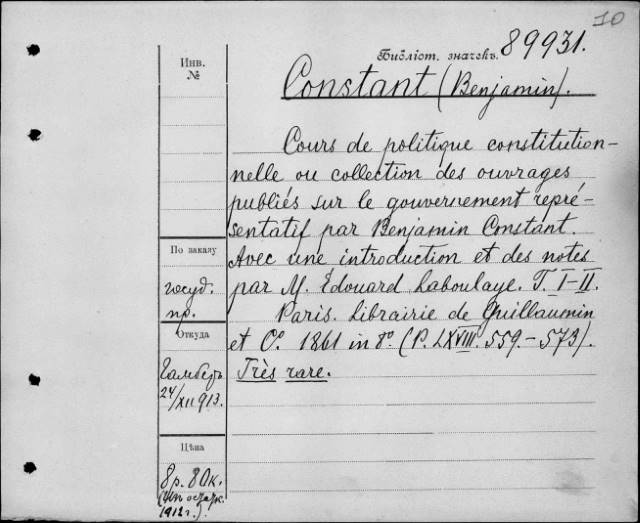 10
Библіот. значекъ. 89931.
Инв.
№
Constant (Benjamin).
Cours de politique constitution-
nelle ou collection des ouvrages
publiés sur le gouvernement repré-
sentatif par Benjamin Constant.
Avec une introduction et des notes
par M. Édouard Laboulaye. T. I–II.
Paris. Librairie de Guillaumin
et Cº. 1861 in 8º. (P. LXVIII. 559.–573).
Très rare.
По заказу
госуд.
пр.
Откуда
Гамберъ
24/XII 913.
Цѣна
8 р. 80 к.
1912 г.).